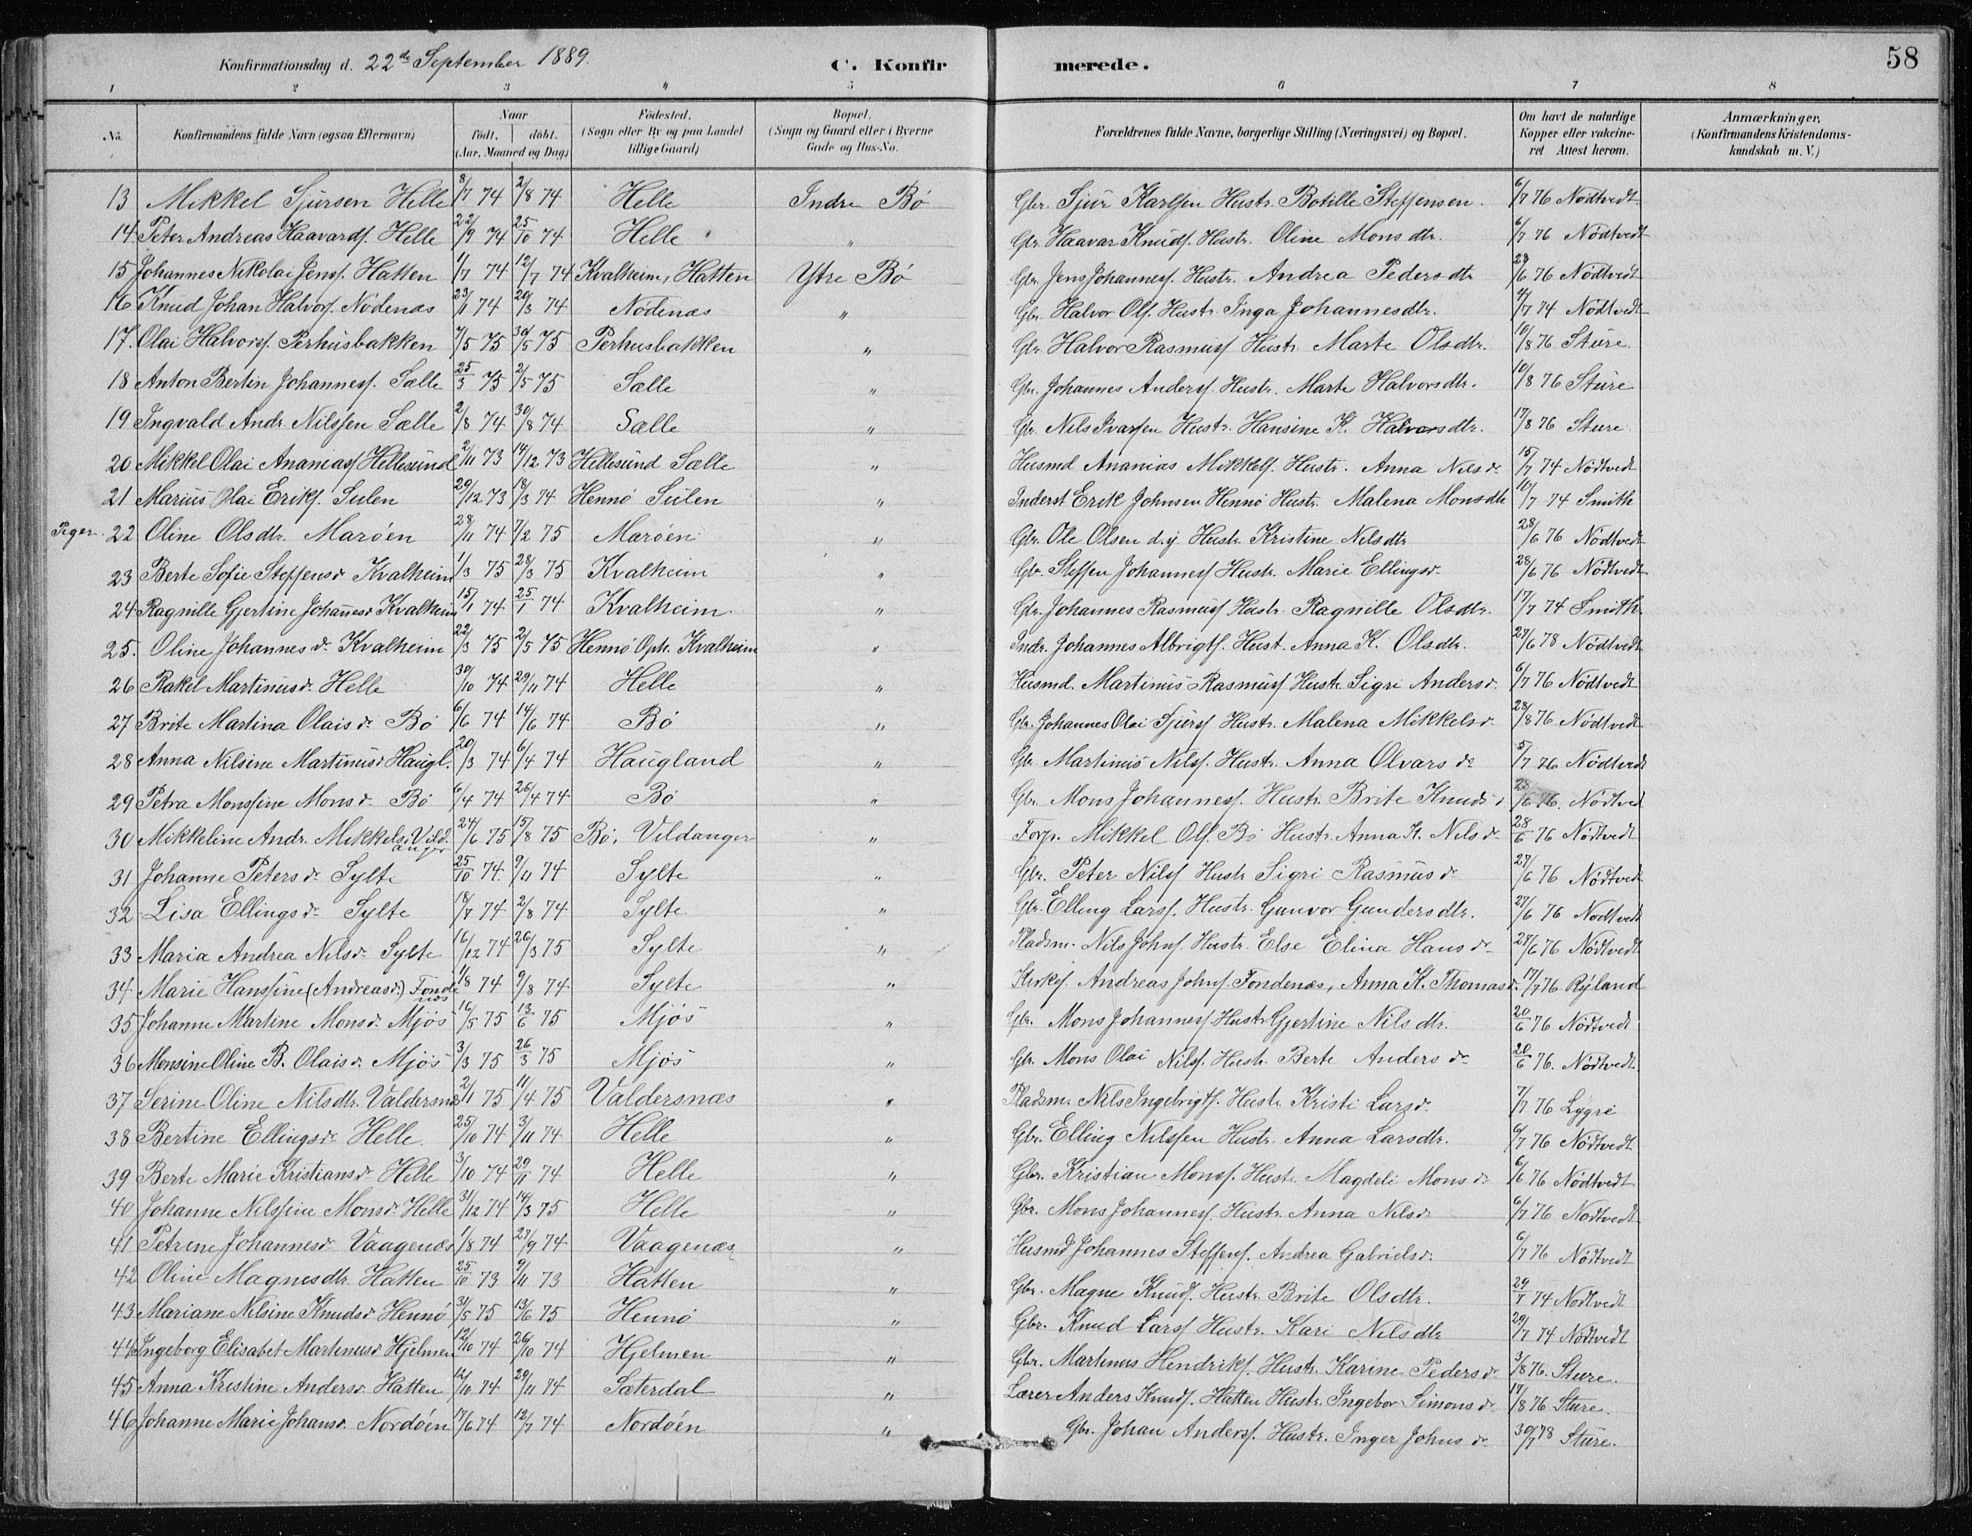 58
Konfirmationsdag d. 22de September 1889. C. Konfirmerede.
1 2 3 4 5 6 7 8
No. Konfirmandens fulde Navn (ogsaa Efternavn) Naar födt, döbt. (Aar, Maaned og Dag) Födested. (Sogn eller By og paa Landet tillige Gaard) Bopæl. (Sogn og Gaard eller i Byerne Gade og Hus-No. Forældrenes fulde Navne, borgerlige Stilling (Næringsvei) og Bopæl. Om havt de naturlige Kopper eller vakcineret Attest herom. Anmærkninger, (Konfirmandens Kristendomskundskab m. V.)
13 Mikkel Sjursen Helle 8/7 74 2/8 74 Helle Indre Bö Gbr. Sjur Karlsen Hustr. Botille Steffensen 6/7 76 Nödtvedt
14 Peter Andreas Haavards. Helle 22/9 74 25/10 74 Helle " Gbr. Haavar Knuds. Hustr. Oline Monsdtr. 6/7 76 Nödtvedt
15 Johannes Nikolai Jens. Hatten 1/7 74 12/7 74 Kvalheim, Hatten Ytre Bö Gbr. Jens Johannes. Hustr. Andrea Pedersdtr 28/6 76 Nödtvedt
16 Knud Johan Halvors. Nödenæs 23/1 74 29/3 74 Nödenæs " Gbr. Halvor Ols. Hustr. Inga Johannesdtr. 4/7 74 Nödtvedt
17. Olai Halvors. Perhusbakken 7/5 75 30/5 75 Perhusbakken " Gbr. Halvor Rasmuss. Hustr. Marte Olsdtr. 10/8 76 Sture
18 Anton Bertin Johanness. Sælle 25/3 75 2/5 75 Sælle " Gbr. Johannes Anders. Hustr. Marte Halvorsdtr. 10/8 76 Sture
19 Ingvald Andr. Nilssen Sælle 2/8 74 30/8 74 Sælle " Gbr. Nils Ivarsen Hustr. Hansine K. Halvorsdtr. 17/8 76 Sture
20 Mikkel Olai Ananiass. Hellesund 2/11 73 14/12 73 Hellesund Sælle " Husmd Ananias Mikkels. Hustr. Anna Nilsdr 15/7 74 Nödtvedt
21 Marius Olai Eriks. Sulen 29/12 73 18/3 74 Hennö Sulen " Inderst Erik Johnsen Hennö Hustr. Malena Monsdtr 10/7 74 Smith
Piger. 22 Oline Olsdtr. Maröen 28/11 74 7/2 75 Maröen " Gbr. Ole Olsen d.y. Hustr. Kristine Nilsdtr 28/6 76 Nödtvedt
23 Berte Sofie Steffensdr Kvalheim 1/3 75 28/3 75 Kvalheim " Gbr. Steffen Johanness. Hustr. Marie Ellingsdr 28/6 76 Nödtvedt
24 Ragnille Gjertine Johanesdr Kvalheim 15/1 74 25/1 74 Kvalheim " Gbr. Johannes Rasmuss. Hustr. Ragnille Olsdtr. 17/7 74 Smith
25. Oline Johannesdr. Kvalheim 22/3 75 2/5 75 Hennö Oph. Kvalheim " Indr. Johannes Albrigts. Hust. Anna K. Olsdtr. 27/6 78 Nödtvedt
26 Rakel Martinusdr. Helle 30/10 74 29/11 74 Helle " Husmd. Martinus Rasmuss. Hustr. Sigri Andersdr. 6/7 76 Nödtvedt
27 Brite Martina Olaisdr. Bö 6/6 74 14/6 74 Bö " Gbr. Johannes Olai Sjurs. Hustr. Malena Mikkelsdr. 28/8 76 Nödtvedt
28 Anna Nilsine Martinusdr Haugl. 20/3 74 6/4 74 Haugland " Gbr. Martinus Nils. Hustr. Anna Olvarsdr 5/7 76 Nödtvedt
29 Petra Monssine Monsdr. Bö 6/4 74 26/4 74 Bö " Gbr. Mons Johanness. Hustr. Brite Knudsd 28/6 76. Nödtved
30 Mikkeline Andr. Mikkelsdr Vildanger 24/6 75 15/8 75 Bö, Vildanger " Forp. Mikkel Ols. Bö Hustr. Anna K. Nilsdr 28/6 76 Nödtvedt
31 Johanne Petersdr. Sylte 25/10 74 9/11 74 Sylte " Gbr. Peter Nils. Hustr Sigri Rasmusdr 27/6 76 Nödtvedt
32 Lisa Ellingsdr. Sylte 18/7 74 2/8 74 Sylte " Gbr. Elling Lars. Hustr. Gunvor Gundersdtr. 27/6 76 Nödtvedt
33 Maria Andrea Nilsdr. Sylte 16/12 74 26/3 75 Sylte " Pladsm. Nils Johns. Hustr. Else Elina Hansdr 27/6 76 Nödtvedt
34 Marie Hanssine (Andreasdr.) Fondenæs 1/8 74 9/8 74 Sylte " Kirkes. Andreas Johns. Fondenæs, Anna K. Thomasdr. 17/7 76 Ryland
35 Johanne Martine Monsdr. Mjös 16/5 75 13/6 75 Mjös " Gbr. Mons Johanness. Hustr Gjertine Nilsdtr. 20/6 76 Nödtvedt
36 Monsine Oline B. Olaisdr. Mjös 3/3 75 26/3 75 Mjös " Gbr. Mons Olai Nils. Hustr. Berte Andersdr 20/6 76. Nödtvedt.
37 Serine Oline Nilsdtr. Valdersnæs 2/1 75 11/4 75 Valdersnæs " Pladsm. Nils Ingebrigts. Hustr. Kristi Larsdr. 7/7 76 Lygre
38 Bertine Ellingsdr Helle. 25/10 74 3/11 74 Helle " Gbr. Elling Nilssen Hustr. Anna Larsdtr. 6/7 76 Nödtvedt
39 Berte Marie Kristiansdr Helle 3/10 74 29/11 74 Helle " Gbr. Kristian Mons. Hustr. Magdeli Monsdr 6/6 76 Nödtvedt
40 Johanne Nilssine Monsdr. Helle 31/12 74 14/3 75 Helle " Gbr. Mons Johanness. Hustr. Anna Nilsdr 6/7 76 Nödtvedt
41 Petrine Johannesdr Vaagenæs 1/8 74 27/9 74 Vaagenæs " Husmd Johannes Steffens. Andrea Gabrielsdr. 6/7 76 Nödtvedt
42 Oline Magnesdtr. Hatten 25/10 73 9/11 73 Hatten " Gbr. Magne Knuds. Hustr. Brite Olsdtr. 29/7 74 Nödtvedt
43 Mariane Nilsine Knudsdr Hennö 31/5 75 13/6 75 Hennö " Gbr. Knud Lars. Hustr. Kari Nilsdtr 29/7 74 Nödtvedt
44 Ingeborg Elisabet Martinusdr Hjelmen 12/10 74 26/10 74 Hjelmen " Gbr. Martinus Hendriks. Hustr. Karine Pedersdr. 3/8 76. Sture.
45 Anna Kristine Andersdr Hatten 12/11 74 29/11 74 Sæterdal " Lærer Anders Knuds. Hatten Hustr. Ingebor Simonsdr 17/8 76 Sture.
46 Johanne Marie Johansdr. Nordöen 17/6 74 12/7 74 Nordöen " Gbr. Johan Anders. Hustr. Inger Johnsdr 30/7 78 Sture.